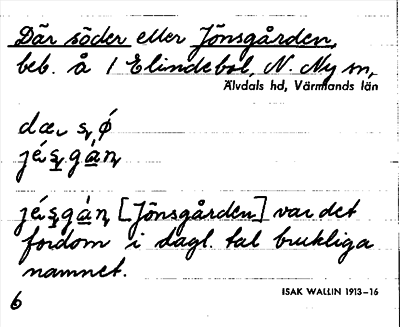 Där söder eller Jönsgården,
beb. å 1 Elindebol, N. Ny sn,
Älvdals hd, Värmlands län
jésgán [Jönsgården] var det
fordom i dagl. tal brukliga
namnet.
6
ISAK WALLIN 1913–16